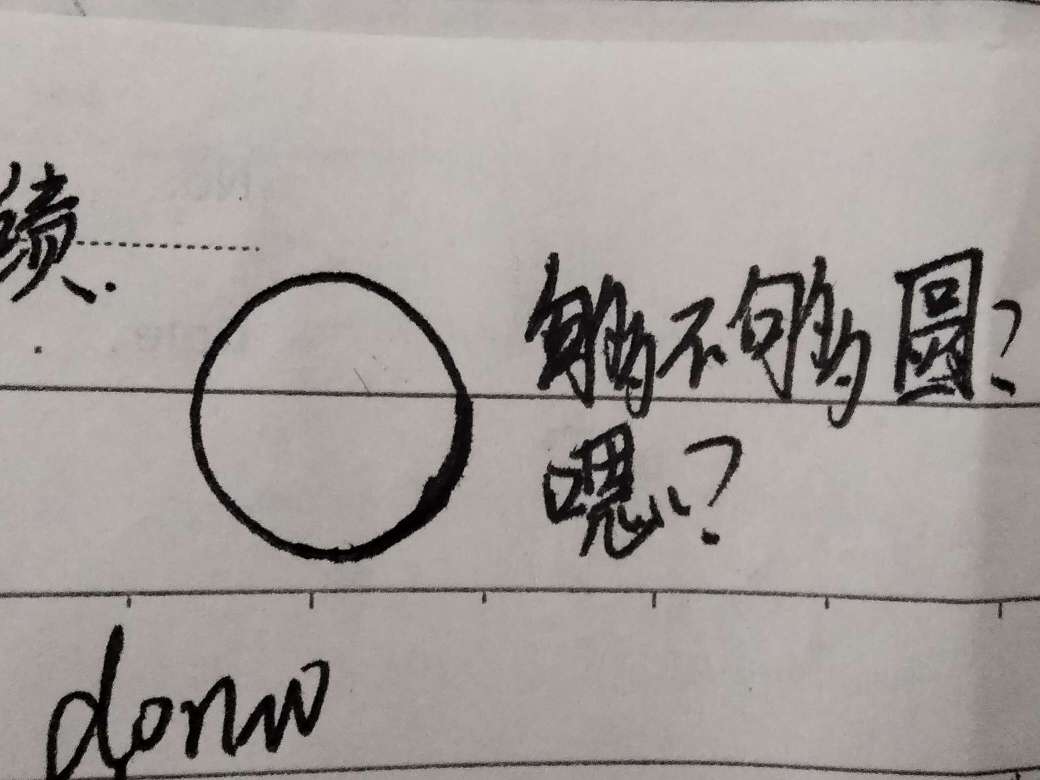 绩.
够不够圆?
嗯?